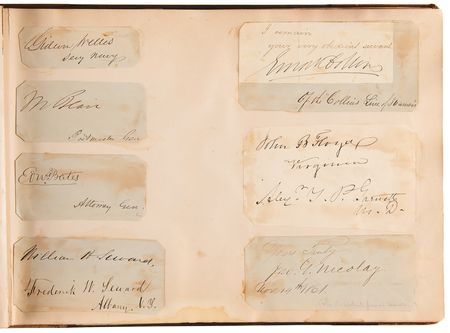 Gideon Welles
Secy Navy
M Blair
Post master Gen
Edw Bates
Attorney Gen.
William H Seward.
Frederick W. Seward
Albany N.Y.
I remain
your very obedient servant
Of the Collins Line of
John B Floyd
Virginia
Alexr Y. P. Garnett
M. D.
Yours Truly
Jno. G. Nicolay
1861